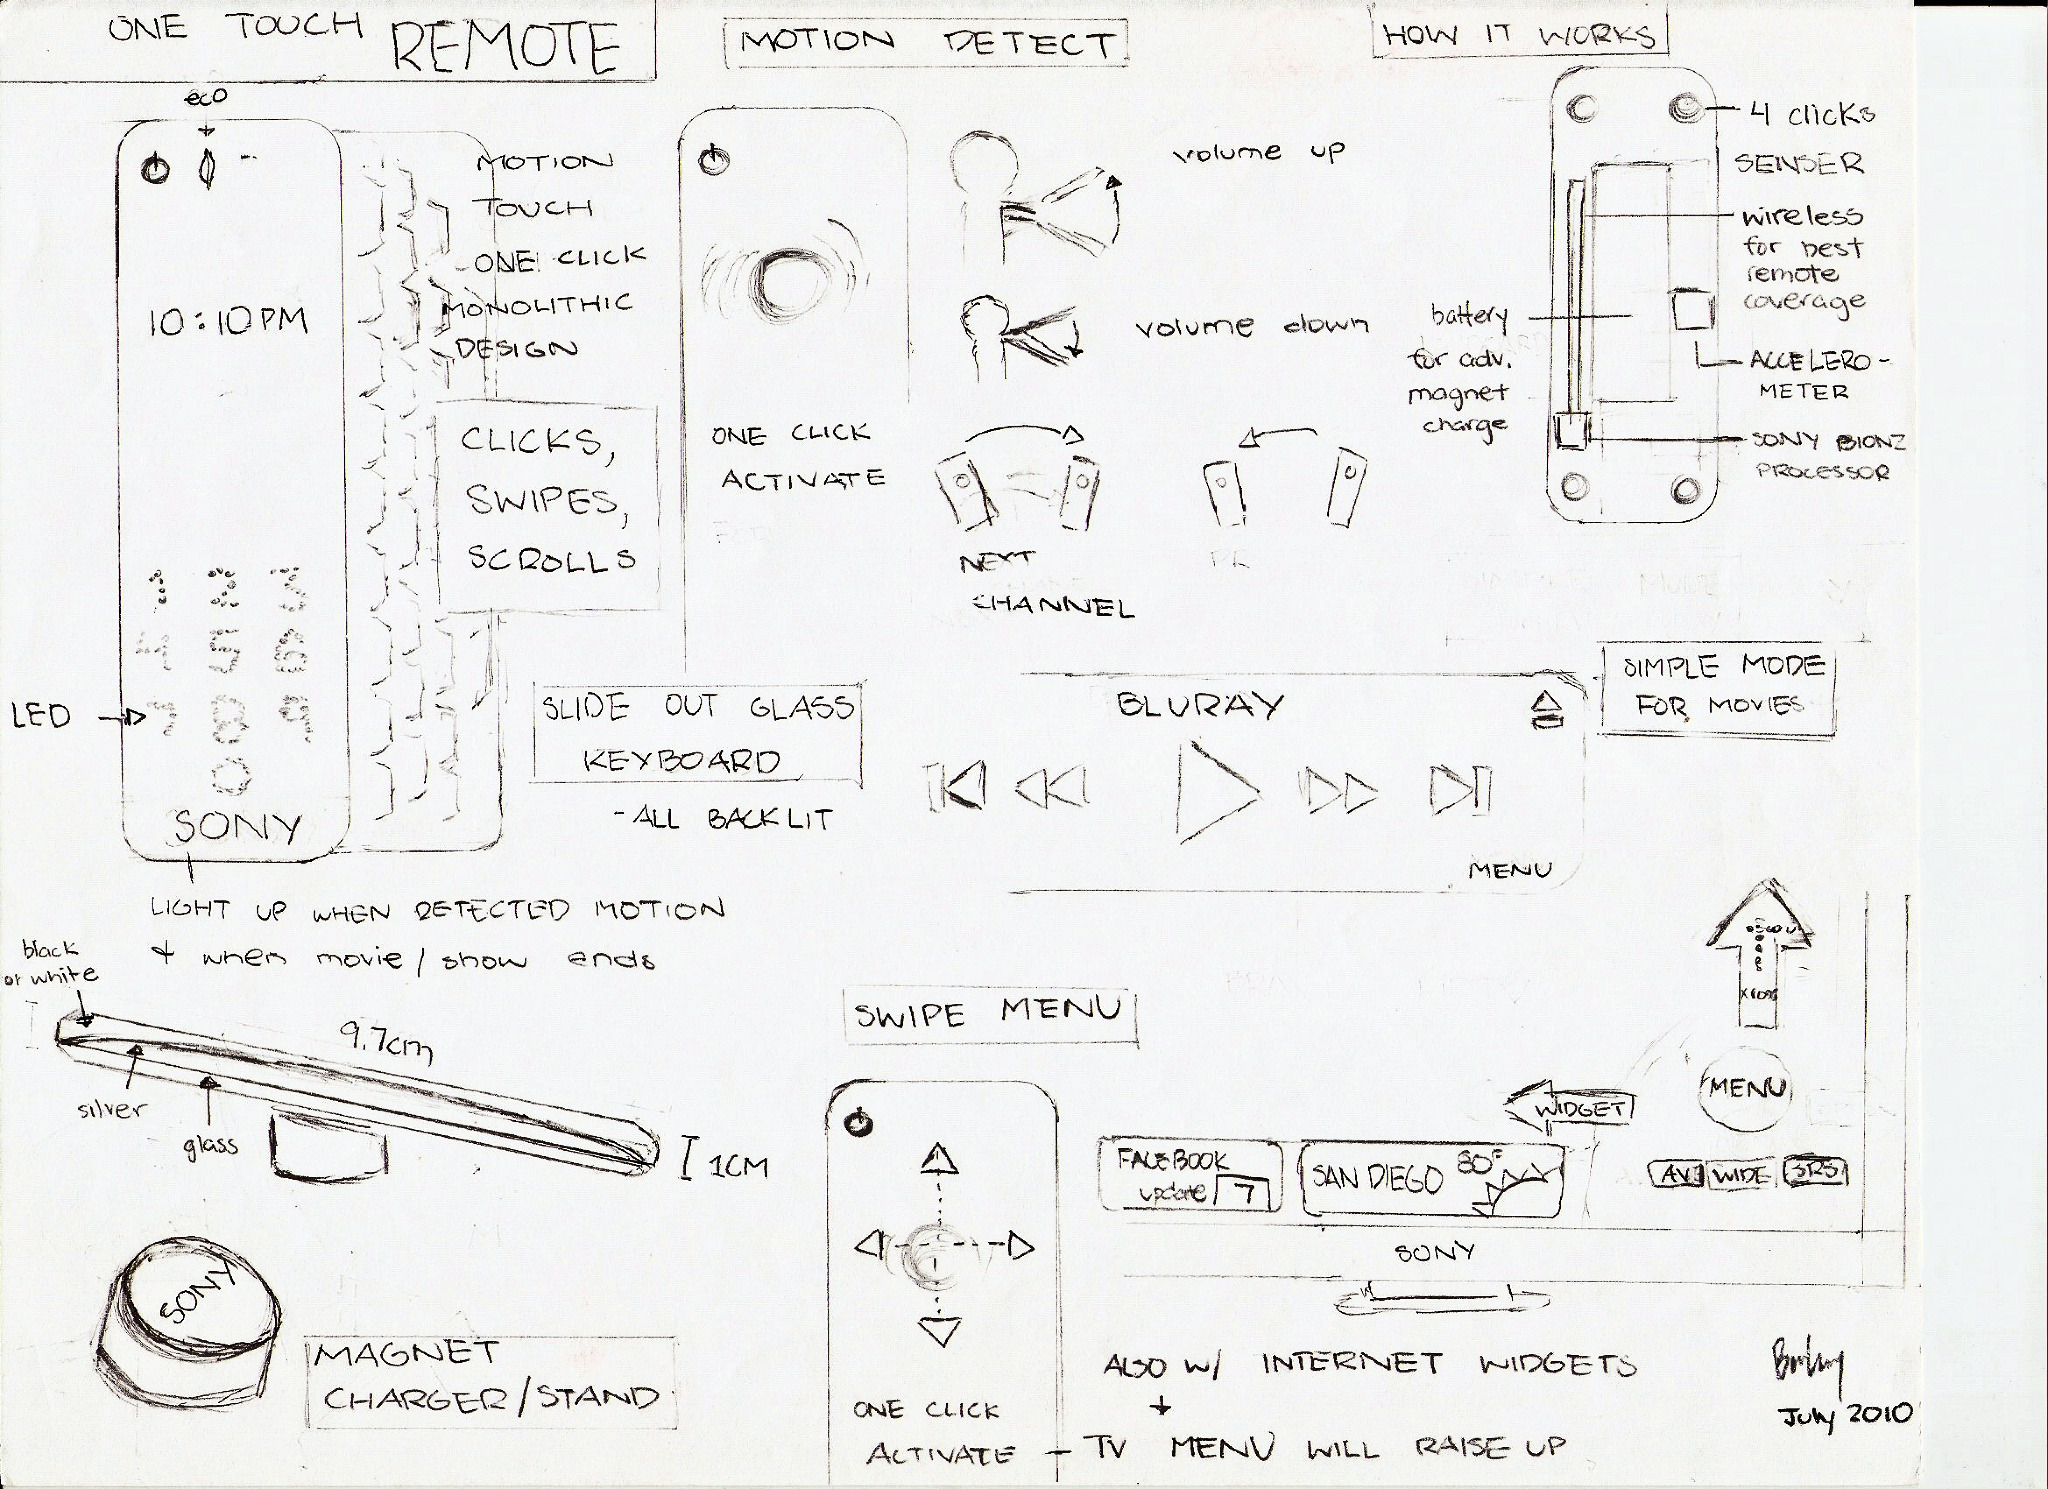 ONE TOUCH REMOTE
eco
10:10PM
1 2 3
4 5 6
7 8 9
0
LED
SONY
MOTION
TOUCH
ONE CLICK
MONOLITHIC
DESIGN
CLICKS,
SWIPES,
SCROLLS
SLIDE OUT GLASS
KEYBOARD
-ALL BACKLIT
LIGHT UP WHEN DETECTED MOTION
+ when movie/show ends
black
or white
9.7cm
silver
glass
1CM
SONY
MAGNET
CHARGER/STAND
MOTION DETECT
ONE CLICK
ACTIVATE
volume up
volume down
NEXT
CHANNEL
HOW IT WORKS
4 clicks
SENSER
wireless
for best
remote
coverage
battery
for adv.
magnet
charge
ACCELERO-
METER
SONY BIONZ
PROCESSOR
SIMPLE MODE
FOR MOVIES
BLURAY
MENU
SWIPE MENU
ONE CLICK
ACTIVATE - TV MENU WILL RAISE UP
MENU
WIDGET
FACEBOOK
update 7
SAN DIEGO 80°F
AV WIDE SRS
SONY
ALSO W/ INTERNET WIDGETS
+
July 2010